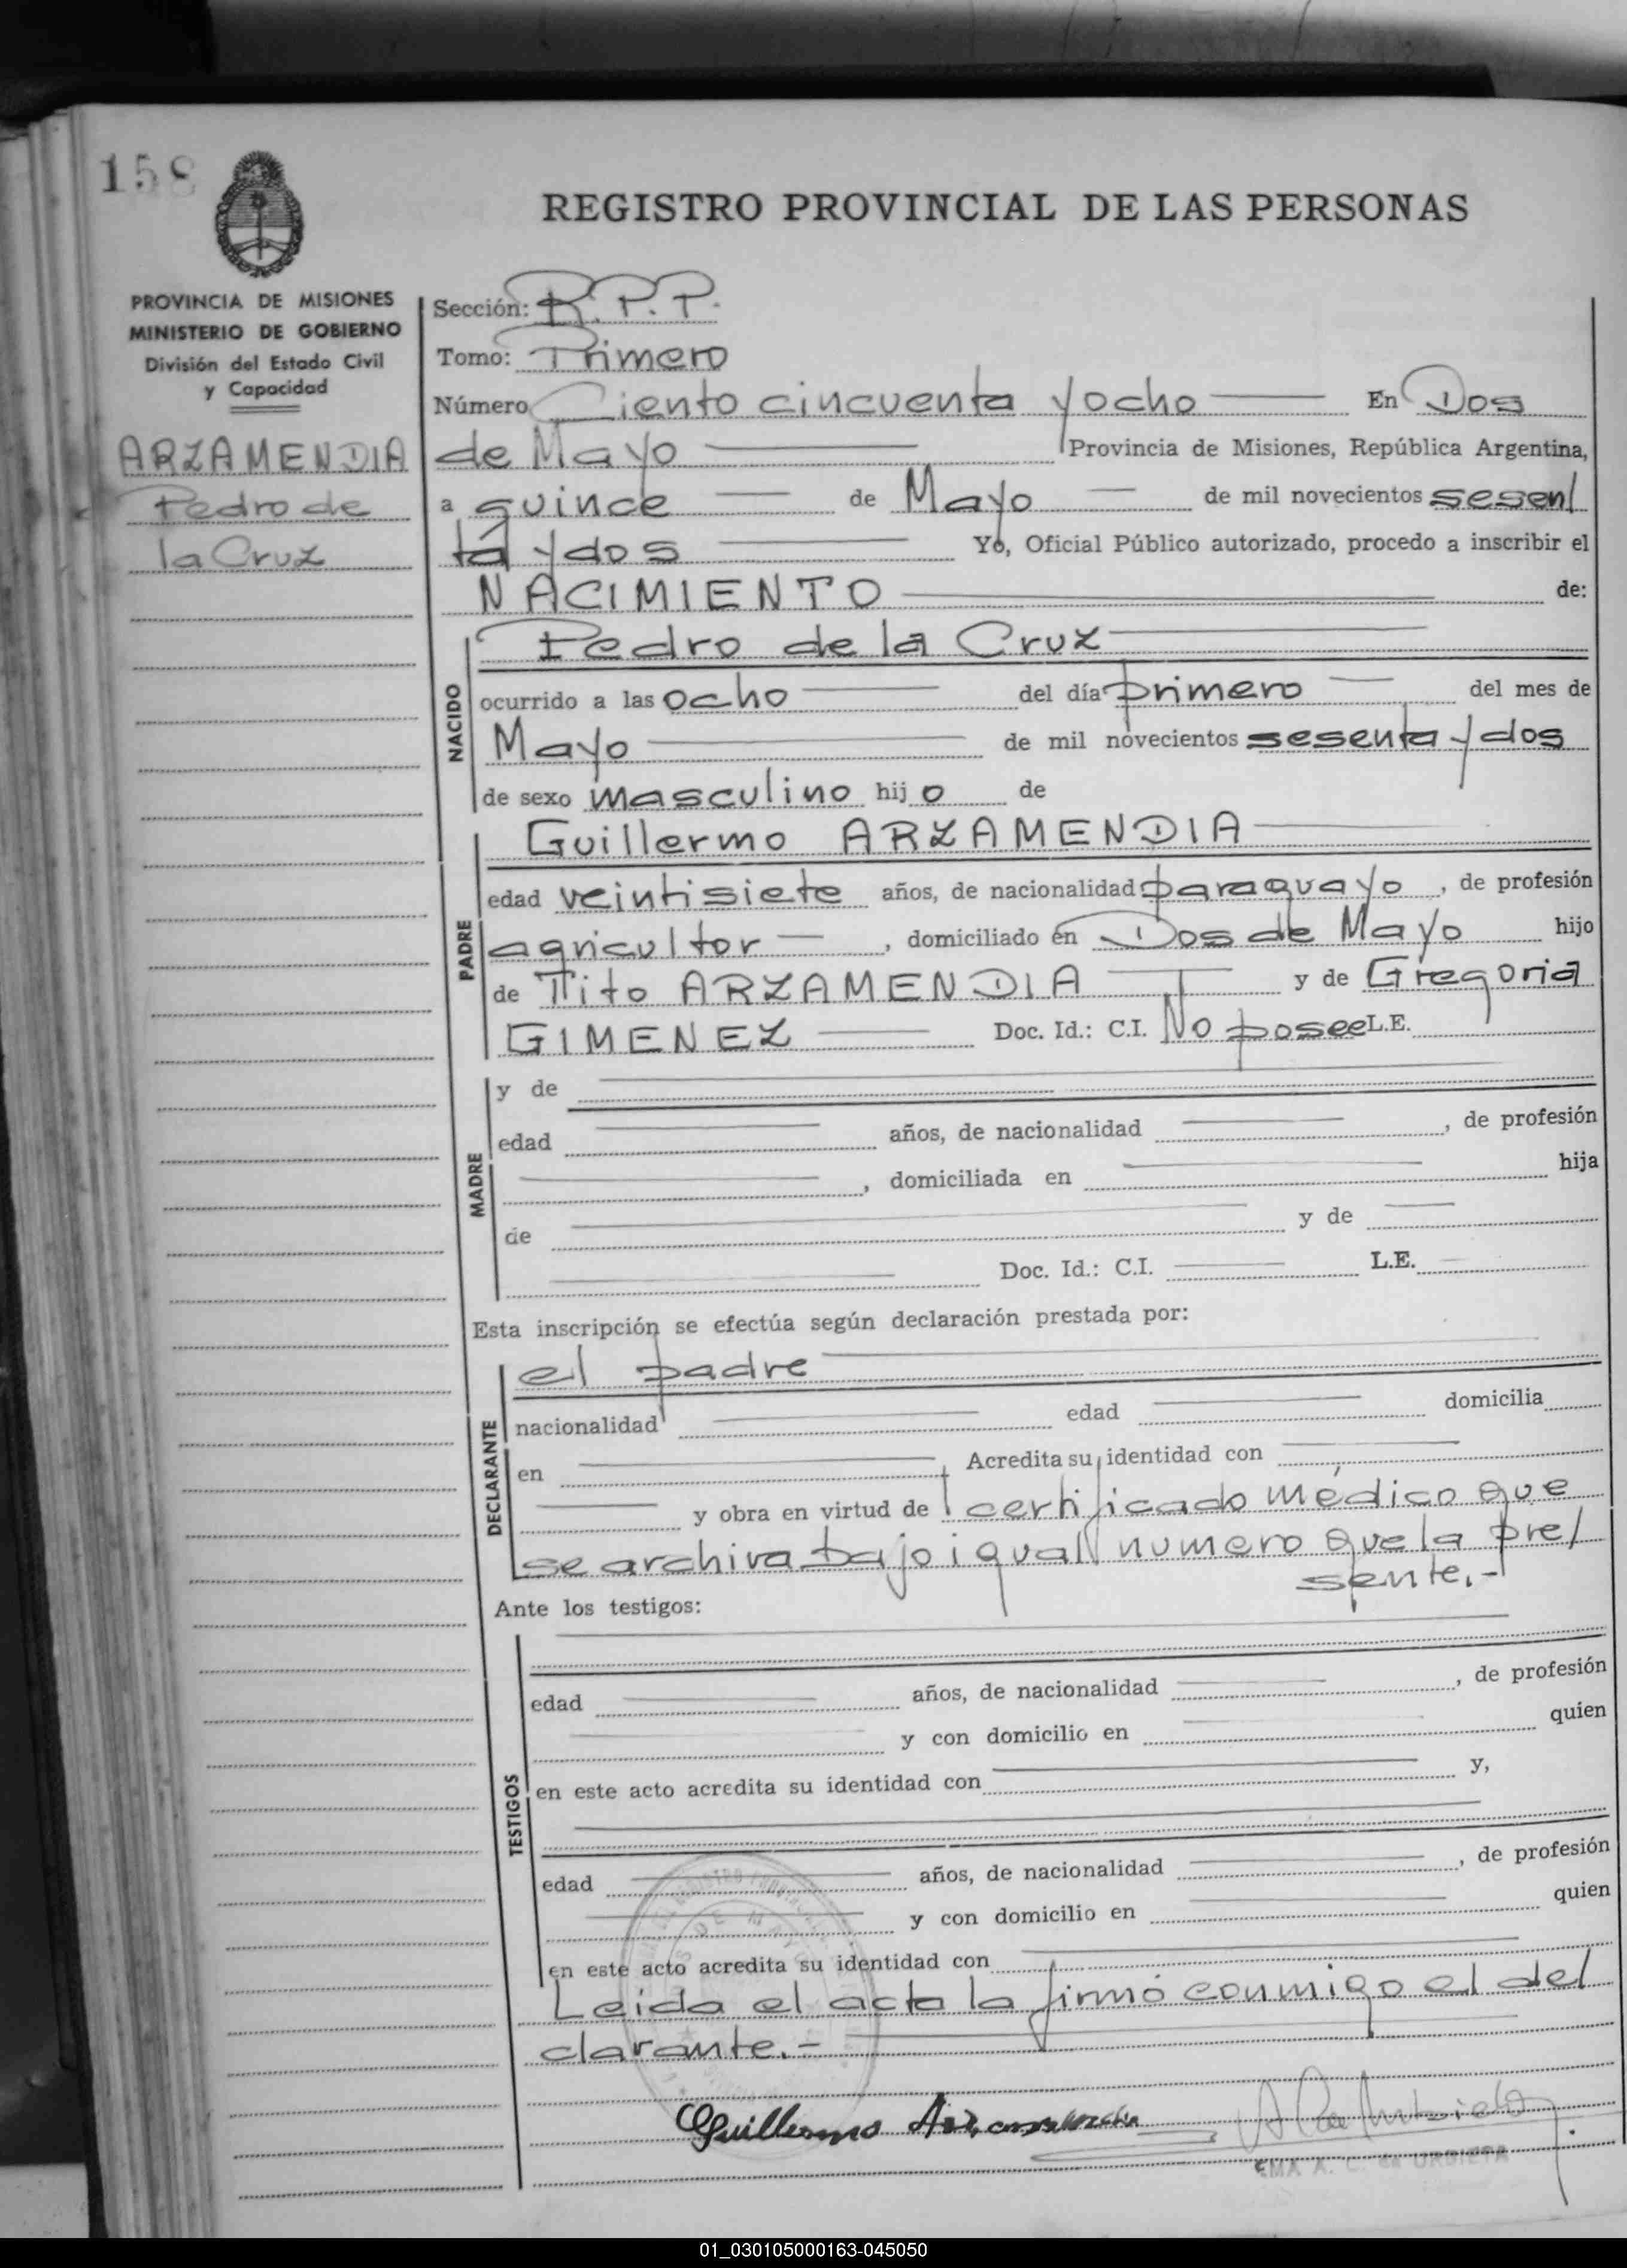 158
REGISTRO PROVINCIAL DE LAS PERSONAS
PROVINCIA DE MISIONES
MINISTERIO DE GOBIERNO
División del Estado Civil
y Capacidad
ARZAMENDIA
Pedro de
la Cruz
Sección: R.P.P.
Tomo: Primero
Número Ciento cincuenta y ocho En Dos
de Mayo Provincia de Misiones, República Argentina,
a quince de Mayo de mil novecientos sesen/
ta y dos Yo, Oficial Público autorizado, procedo a inscribir el
NACIMIENTO de:
NACIDO
Pedro de la Cruz
ocurrido a las ocho del día primero del mes de
Mayo de mil novecientos sesenta y dos
de sexo masculino hijo de
PADRE
Guillermo ARZAMENDIA
edad veintisiete años, de nacionalidad paraguayo, de profesión
agricultor, domiciliado en Dos de Mayo hijo
de Tito ARZAMENDIA y de Gregoria
GIMENEZ Doc. Id.: C.I. No posee L.E.
MADRE
y de
edad años, de nacionalidad , de profesión
, domiciliada en hija
de y de
Doc. Id.: C.I. L.E.
Esta inscripción se efectúa según declaración prestada por:
DECLARANTE
el padre
nacionalidad edad domicilia
en Acredita su identidad con
y obra en virtud de certificado médico que
se archiva bajo igual numero que la pre/
sente.-
Ante los testigos:
TESTIGOS
edad años, de nacionalidad , de profesión
y con domicilio en quien
en este acto acredita su identidad con y,
edad años, de nacionalidad , de profesión
y con domicilio en quien
en este acto acredita su identidad con
Leida el acta la firmó conmigo el de/
clarante.-
Guillermo Arzamendia
A. C. de URBIETA
01_030105000163-045050